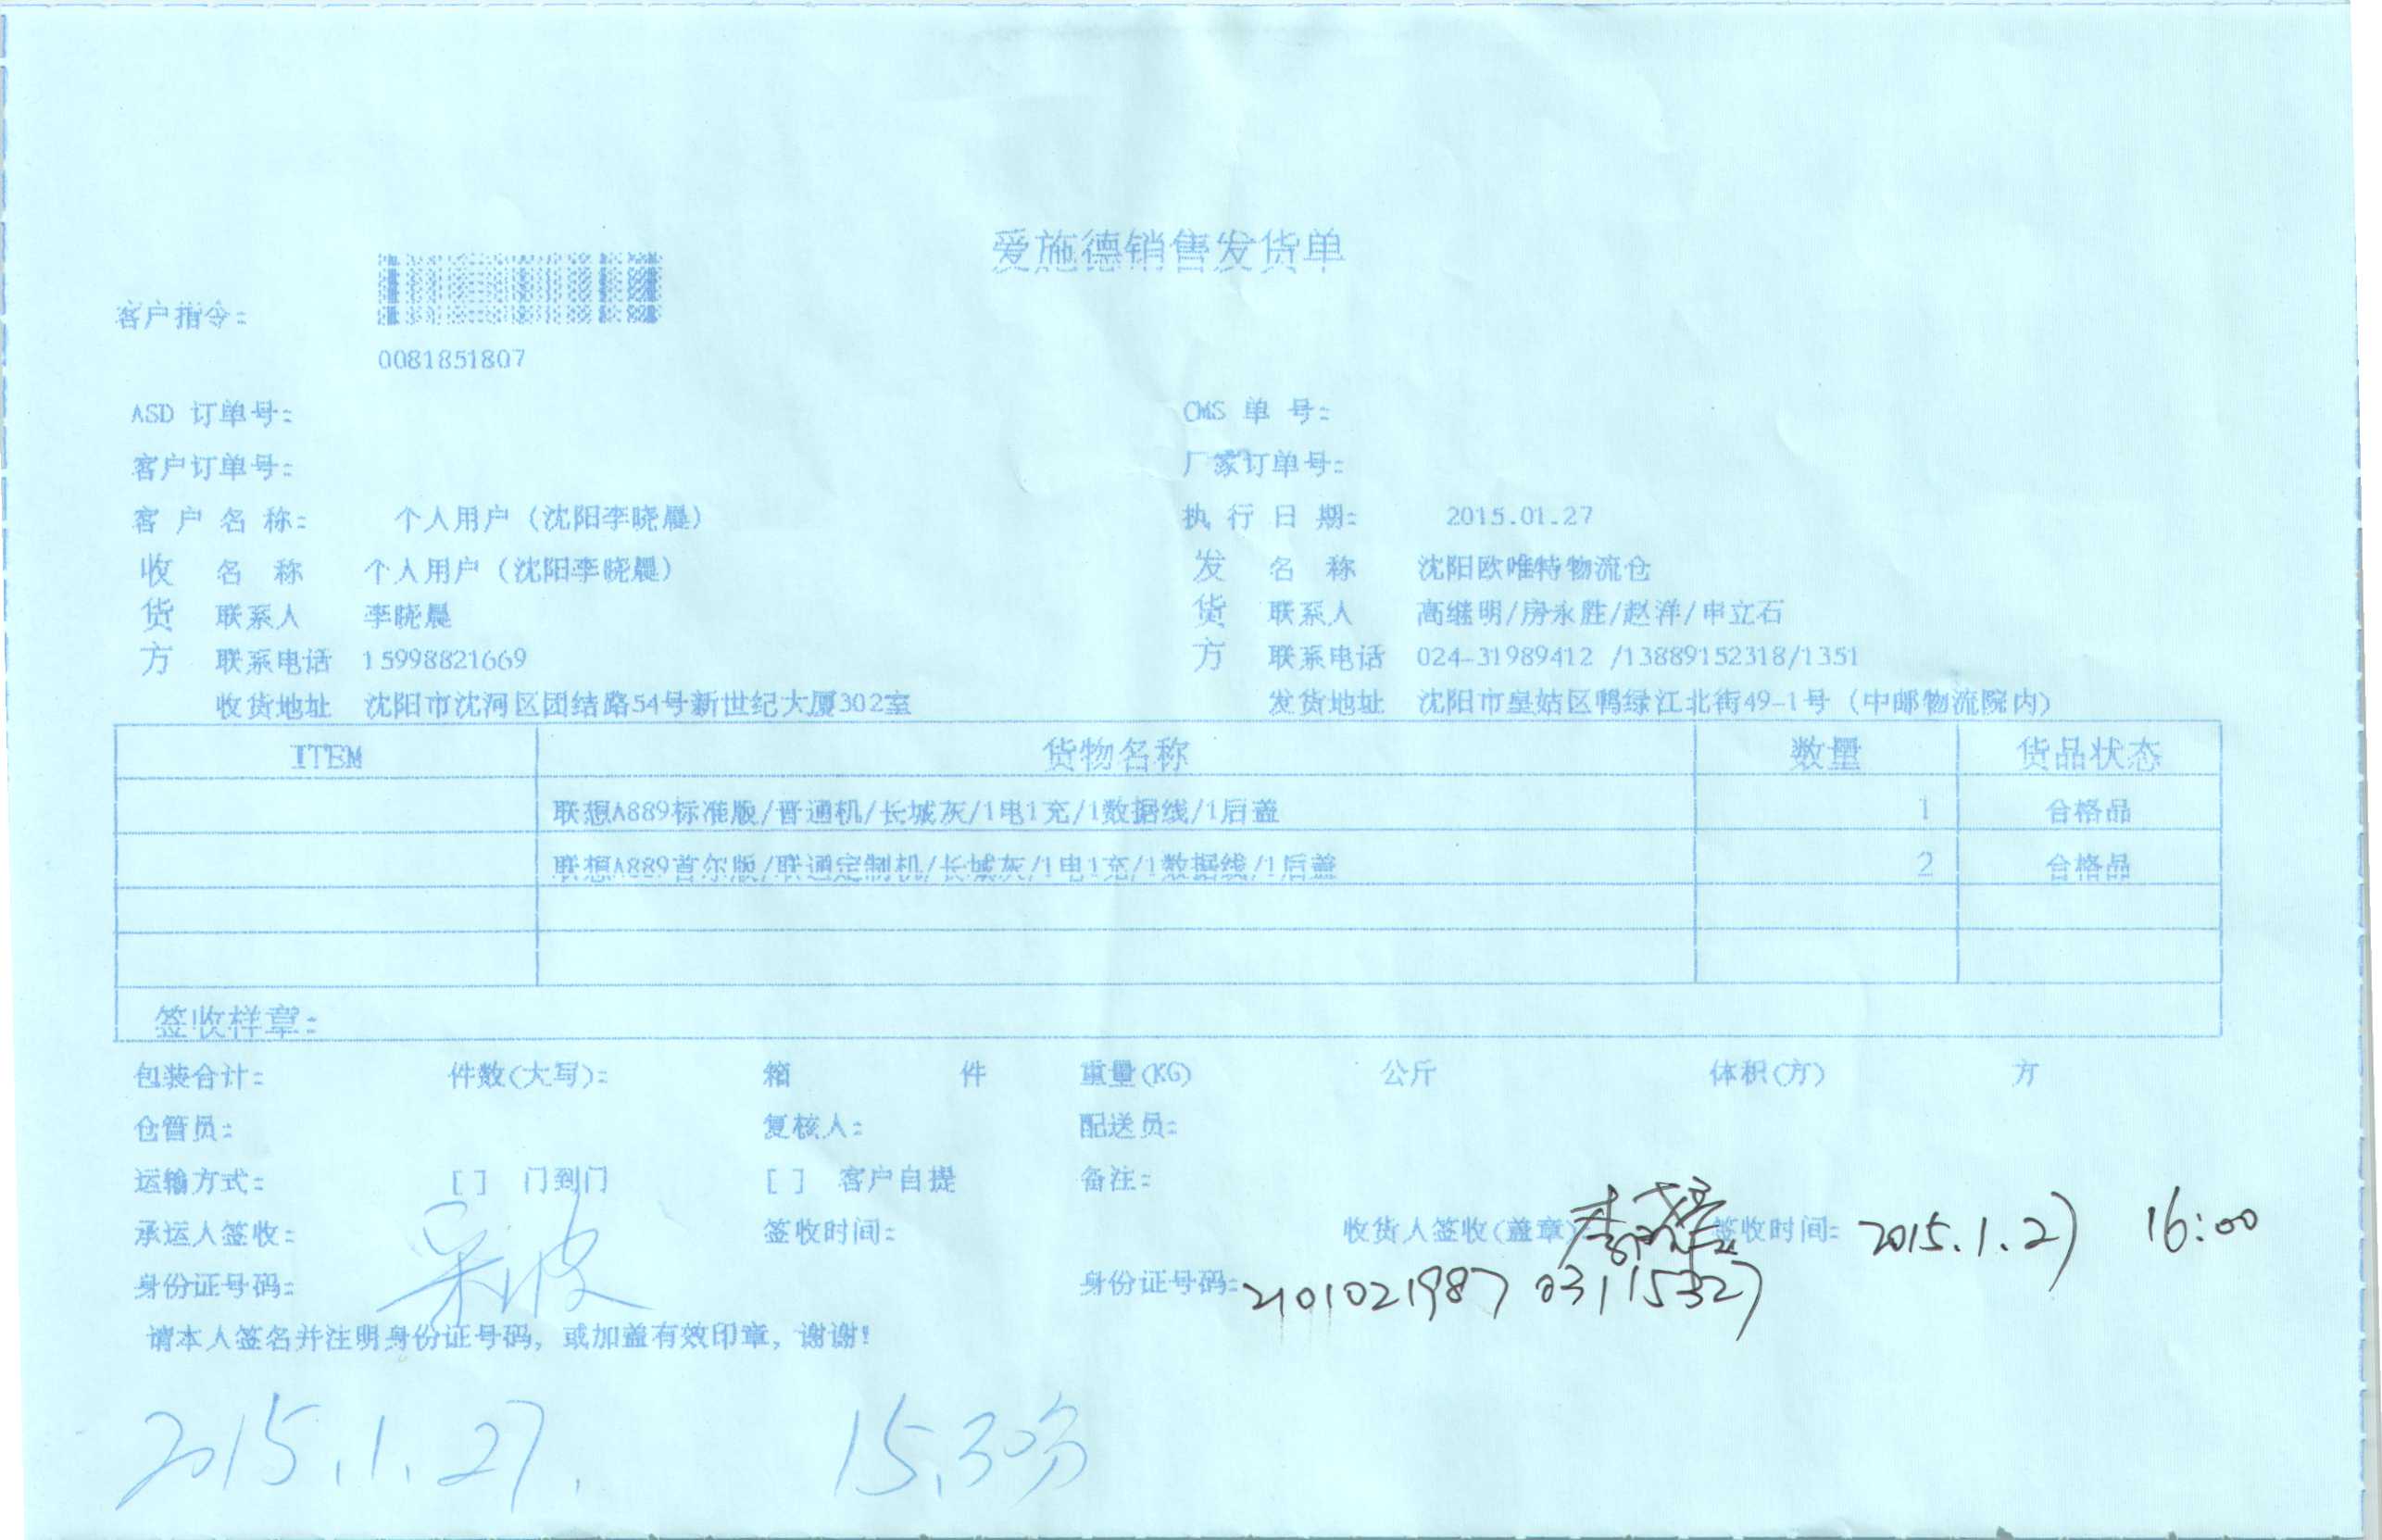 爱施德销售发货单
客户指令:
0081851807
ASD 订单号: CMS 单 号:
客户订单号: 厂家订单号:
客 户 名 称: 个人用户（沈阳李晓晨） 执 行 日 期: 2015.01.27
收 名 称 个人用户（沈阳李晓晨） 发 名 称 沈阳欧唯特物流仓
货 联系人 李晓晨 货 联系人 高继明/房永胜/赵洋/申立石
方 联系电话 15998821669 方 联系电话 024-31989412 /13889152318/1351
收货地址 沈阳市沈河区团结路54号新世纪大厦302室 发货地址 沈阳市皇姑区鸭绿江北街49-1号（中邮物流院内）
ITEM 货物名称 数量 货品状态
联想A889标准版/普通机/长城灰/1电1充/1数据线/1后盖 1 合格品
联想A889首尔版/联通定制机/长城灰/1电1充/1数据线/1后盖 2 合格品
签收样章:
包装合计: 件数(大写): 箱 件 重量(KG) 公斤 体积(方) 方
仓管员: 复核人: 配送员:
运输方式: [ ] 门到门 [ ] 客户自提 备注:
承运人签收: 签收时间: 收货人签收(盖章) 李晓晨 签收时间: 2015.1.27 16:00
身份证号码: 身份证号码: 210102198703115327
请本人签名并注明身份证号码，或加盖有效印章，谢谢!
2015.1.27. 15.30分